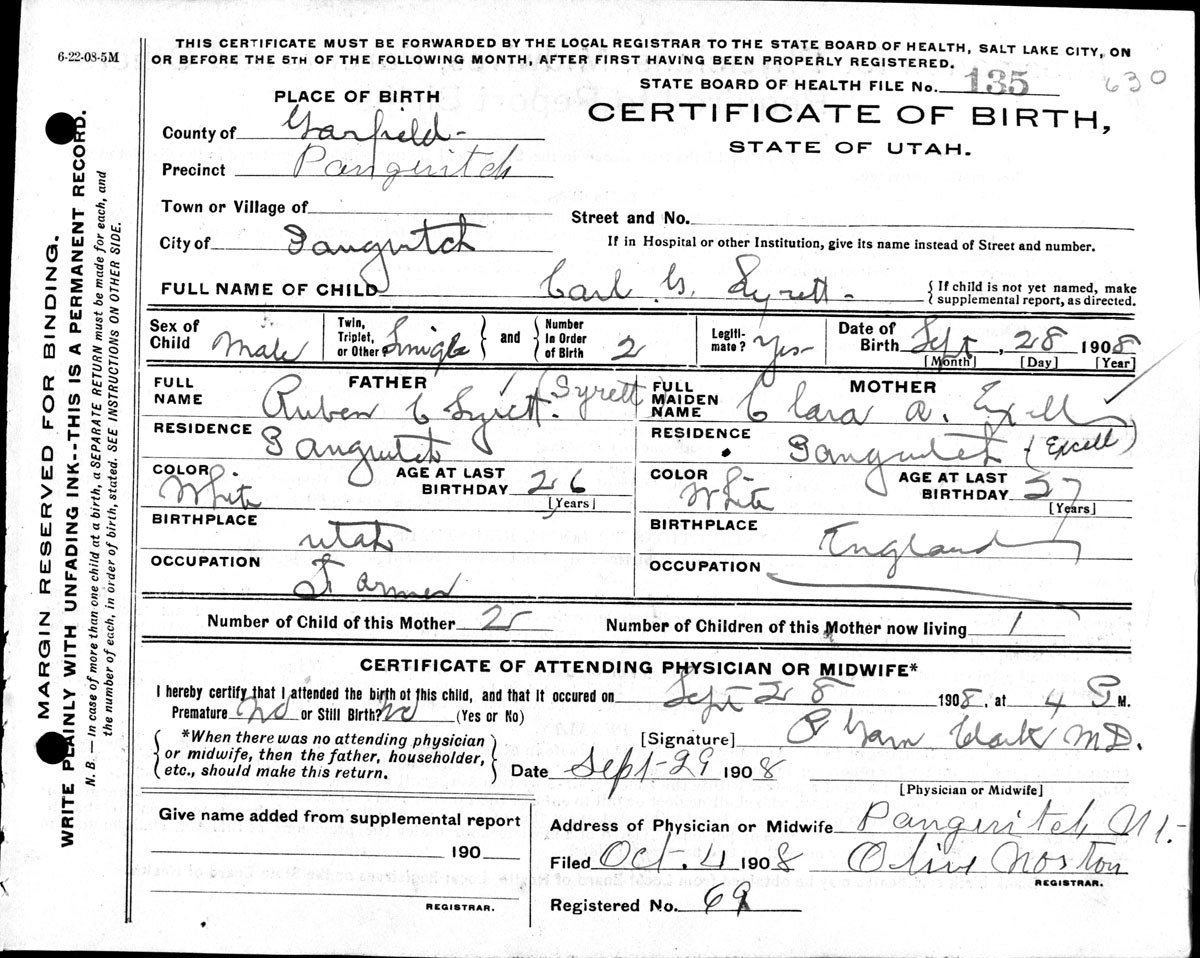 6-22-08-5M
THIS CERTIFICATE MUST BE FORWARDED BY THE LOCAL REGISTRAR TO THE STATE BOARD OF HEALTH, SALT LAKE CITY, ON
OR BEFORE THE 5TH OF THE FOLLOWING MONTH, AFTER FIRST HAVING BEEN PROPERLY REGISTERED.
STATE BOARD OF HEALTH FILE No. 135 630
PLACE OF BIRTH
CERTIFICATE OF BIRTH,
STATE OF UTAH.
County of Garfield-
Precinct Panguitch
Town or Village of
Street and No.
City of Panguitch
If in Hospital or other Institution, give its name instead of Street and number.
FULL NAME OF CHILD Carl G. Syrett-
{If child is not yet named, make
supplemental report, as directed.
Sex of Child Male
Twin, Triplet, or Other Single } and { Number In Order of Birth 2
Legiti-mate? Yes-
Date of Birth Sept, 28 1908
[Month] [Day] [Year]
FATHER
FULL NAME Ruben C Syrett. (Syrett
RESIDENCE Panguitch
COLOR White
AGE AT LAST BIRTHDAY 26
[Years]
BIRTHPLACE Utah
OCCUPATION Farmer
MOTHER
FULL MAIDEN NAME Clara A. Exell
RESIDENCE Panguitch (Excell)
COLOR White
AGE AT LAST BIRTHDAY 27
[Years]
BIRTHPLACE England
OCCUPATION
Number of Child of this Mother 2
Number of Children of this Mother now living 1
CERTIFICATE OF ATTENDING PHYSICIAN OR MIDWIFE*
I hereby certify that I attended the birth of this child, and that it occured on Sept 28 1908, at 4 P M.
Premature No or Still Birth? No (Yes or No)
{*When there was no attending physician
or midwife, then the father, householder,
etc., should make this return.}
[Signature] Clark M.D.
Date Sept-29 1908
[Physician or Midwife]
Give name added from supplemental report
190
REGISTRAR.
Address of Physician or Midwife Panguitch Ut.-
Filed Oct. 4 1908 Olive Norton
REGISTRAR.
Registered No. 69
MARGIN RESERVED FOR BINDING.
WRITE PLAINLY WITH UNFADING INK--THIS IS A PERMANENT RECORD.
N. B. — In case of more than one child at a birth, a SEPARATE RETURN must be made for each, and
the number of each, in order of birth, stated. SEE INSTRUCTIONS ON OTHER SIDE.